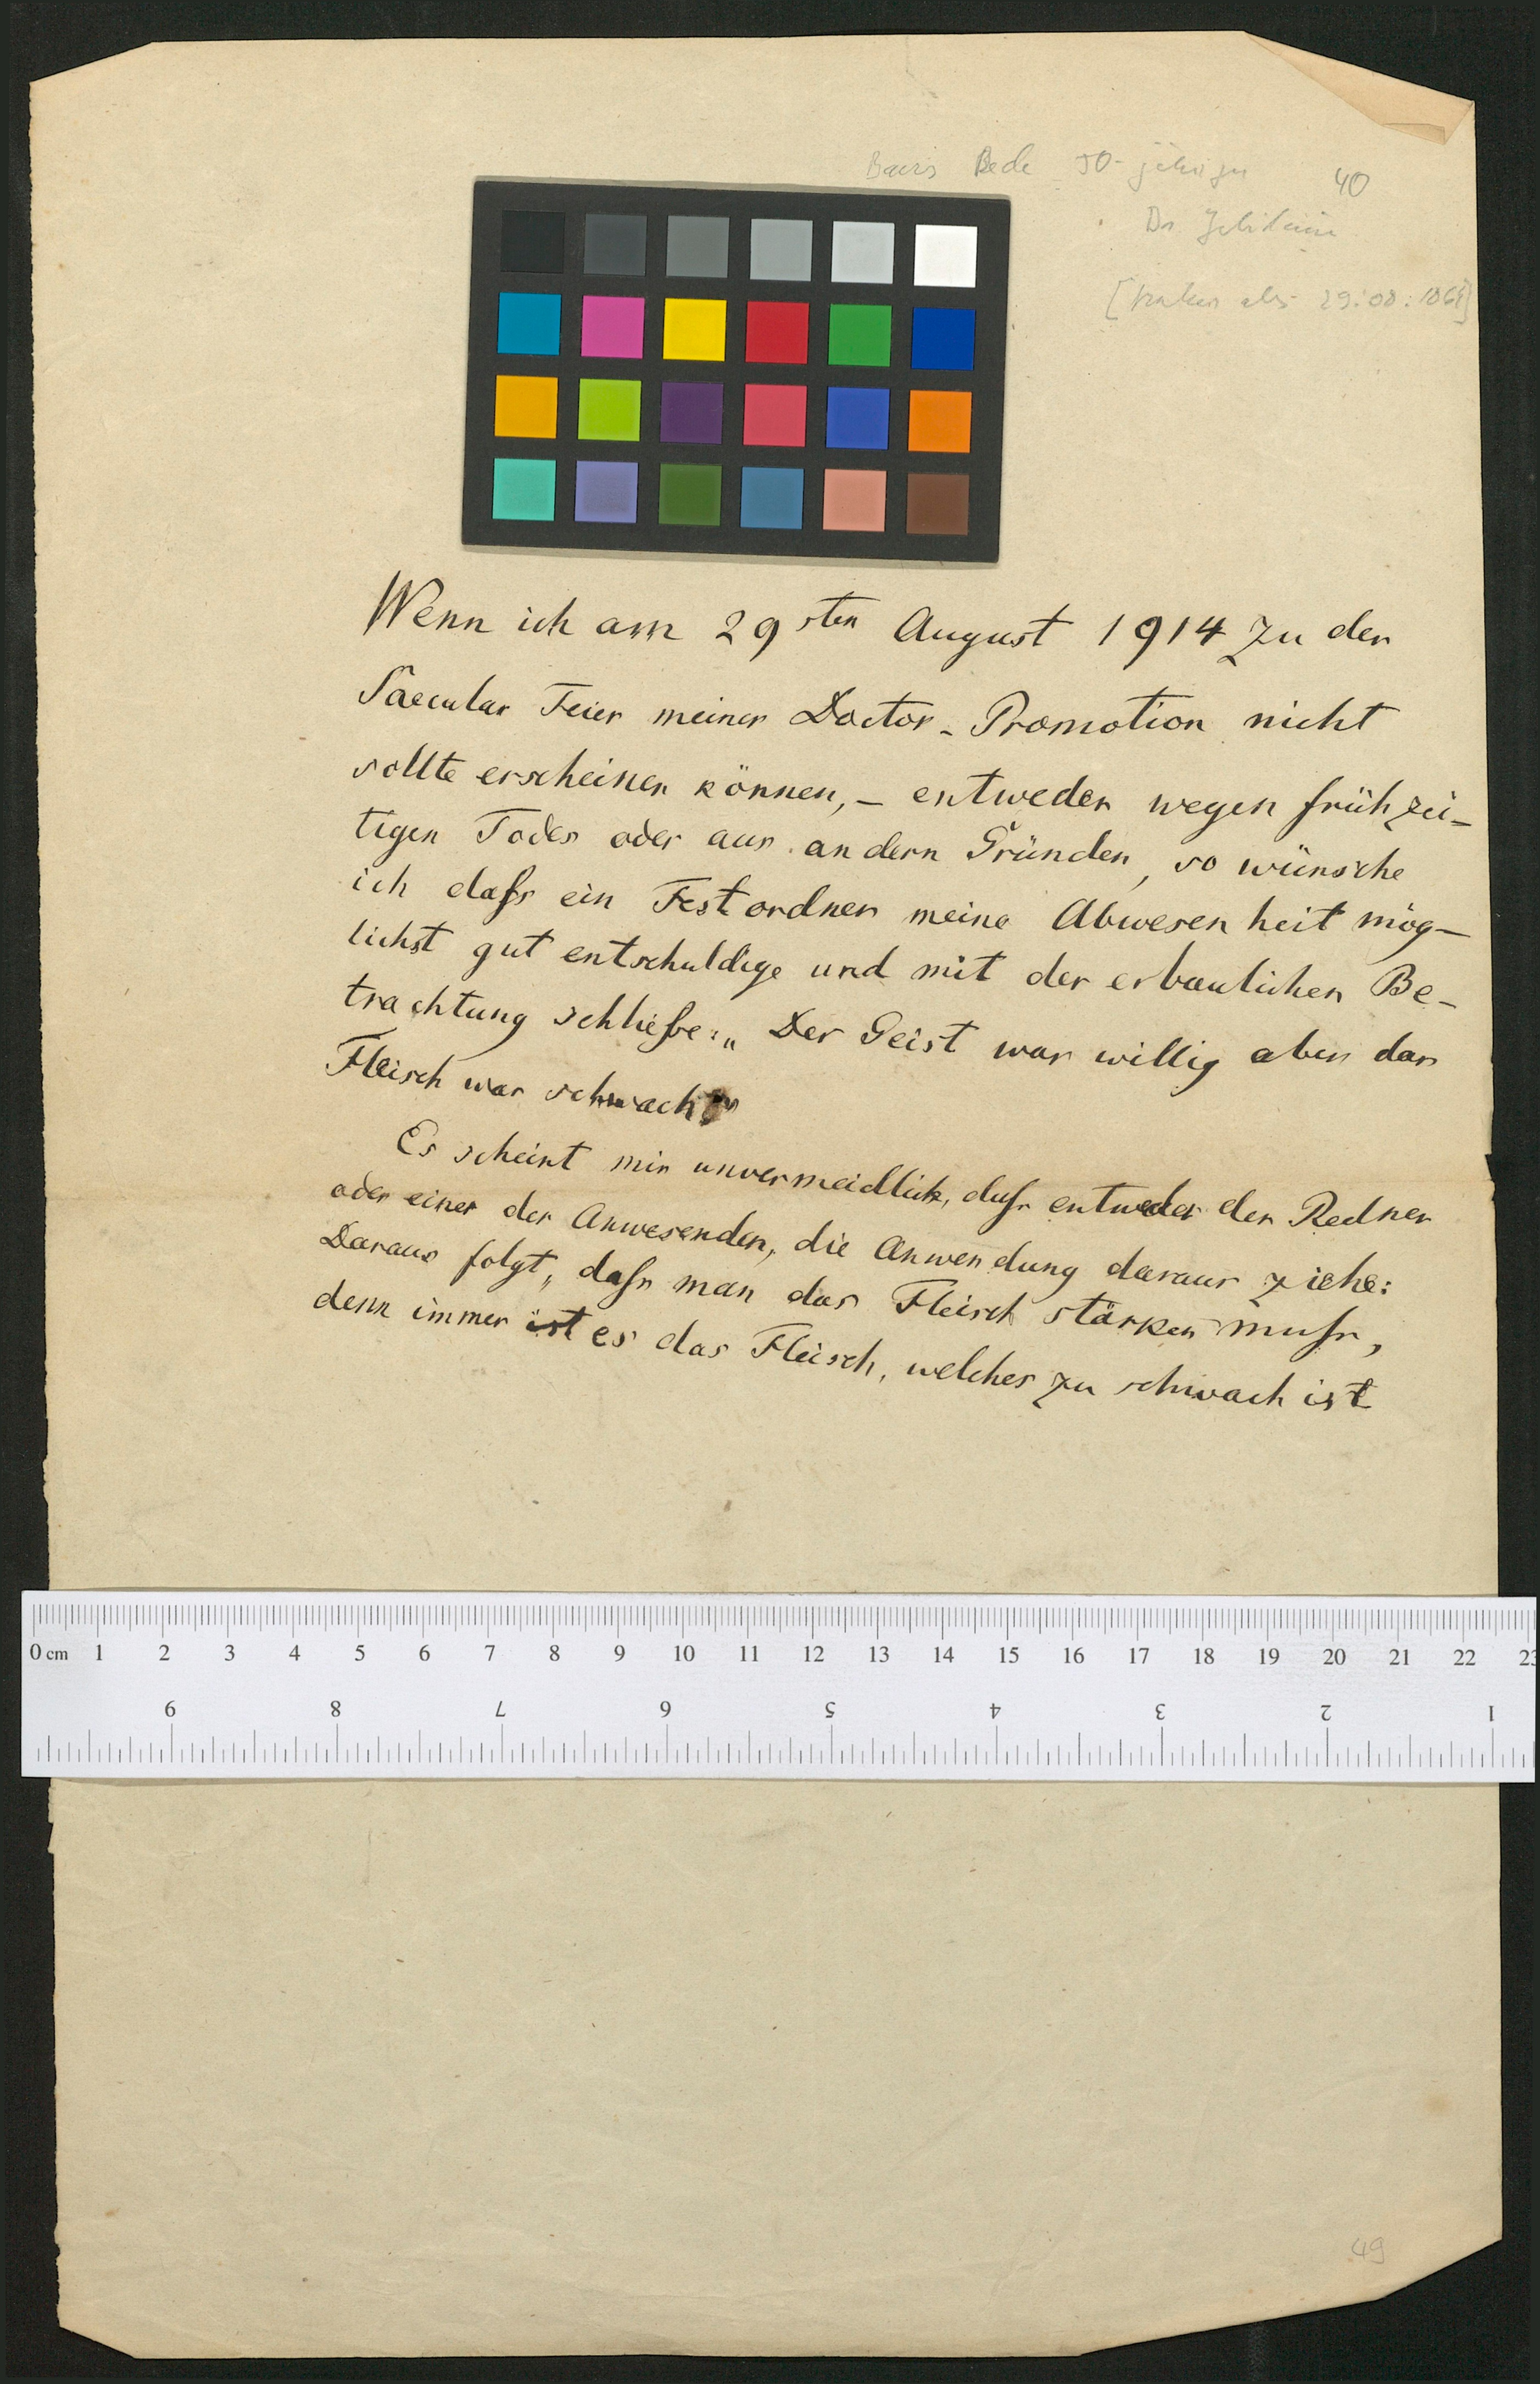 Baers Rede 50-jähriges 40
Dr. Jubiläum
29.08.1864]
Wenn ich am 29sten August 1914 zu der
Säecular Feier meiner Doctor-Promotion nicht
sollte erscheinen können, – entweder wegen frühzei-
tigen Todes oder aus andern Gründen, so wünsche
ich dafs ein Festordner meine Abwesenheit mög-
lichst gut entschuldige und mit der erbaulichen Be-
trachtung schliefse: „Der Geist war willig aber das
Fleisch war schwach"
Es scheint mir unvermeidlich, dafs entweder der Redner
oder einer der Anwesenden, die Anwendung daraus ziehe:
Daraus folgt, dafs man das Fleisch stärken mufs,
denn immer ist es das Fleisch, welches zu schwach ist
0 cm 1 2 3 4 5 6 7 8 9 10 11 12 13 14 15 16 17 18 19 20 21 22 23
9 8 7 6 5 4 3 2 1
49